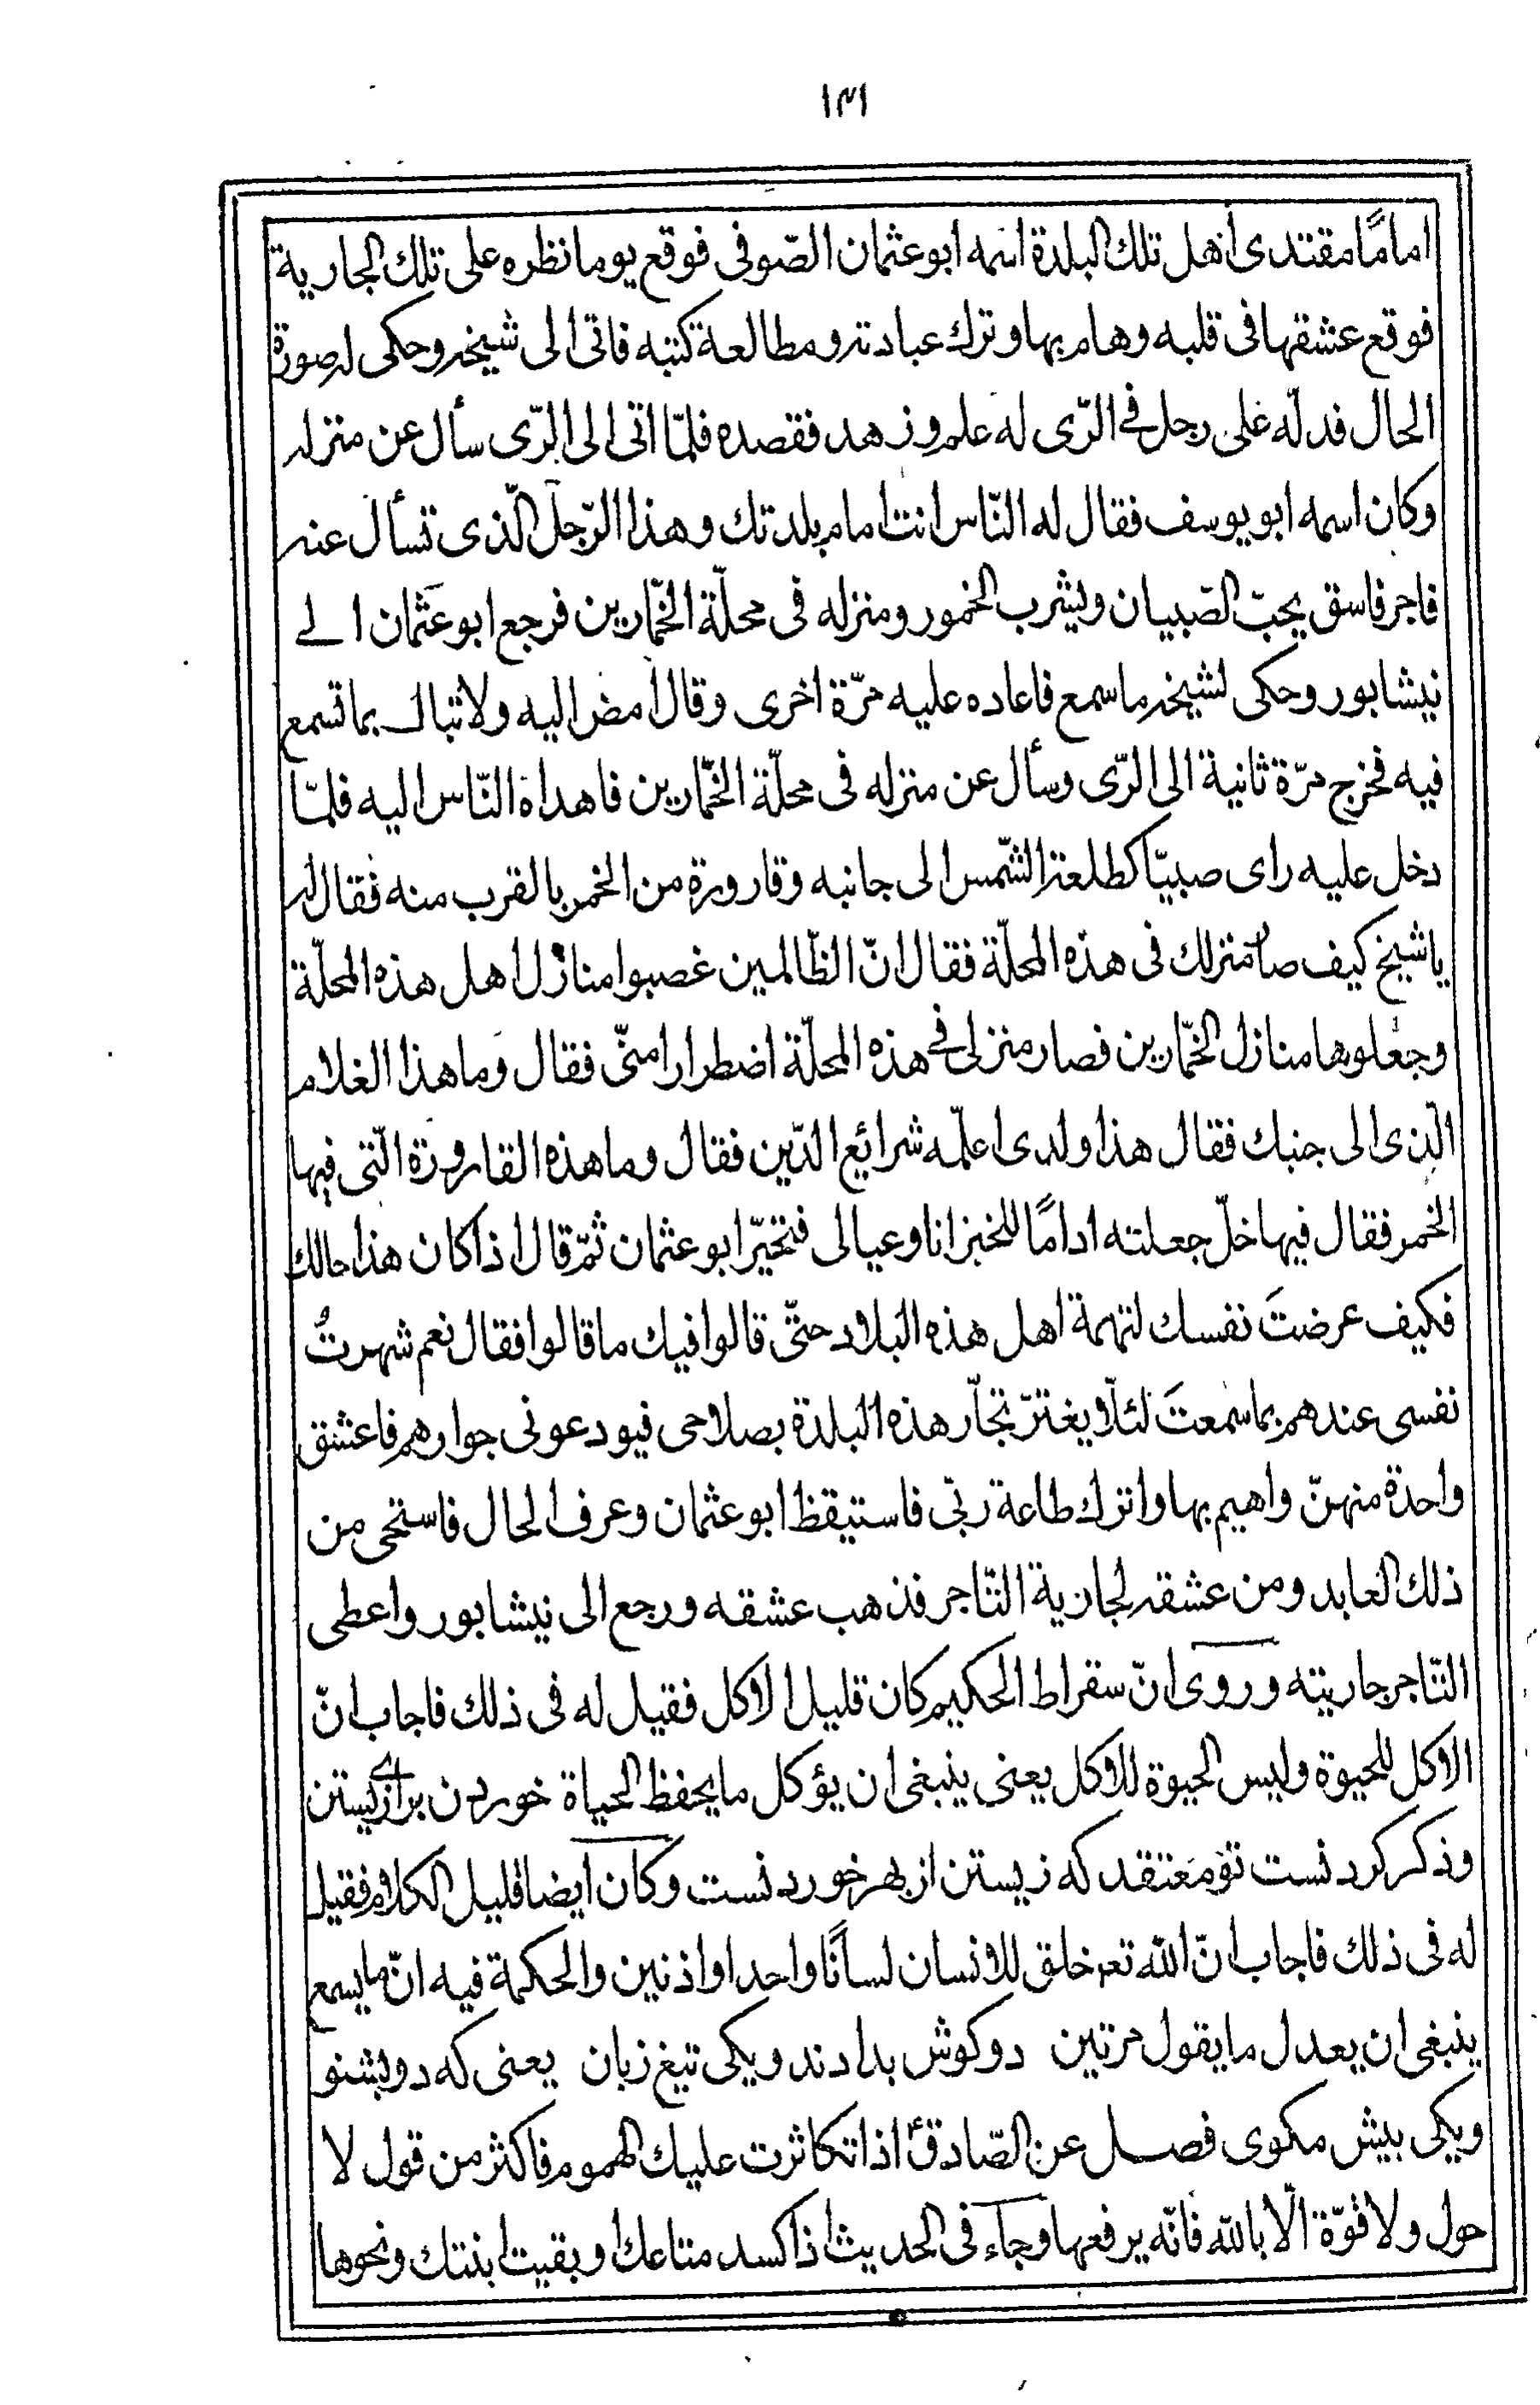 ١٣١
امامًا مقتدى اهل تلك البلدة اسمه ابو عثمان الصّوفى فوقع يوما نظره على تلك الجارية
فوقع عشقها فى قلبه وهام بها وترك عبادته ومطالعة كتبه فاتى الى شيخه وحكى له صورة
الحال فدلّه على رجل فے الرّى له علم وزهد فقصده فلمّا اتى الى الرّى سأل عن منزله
وكان اسمه ابو يوسف فقال له النّاس انت امام بلدتك وهذا الرّجل الّذى تسأل عنه
فاجر فاسق يحبّ الصّبيان ويشرب الخمور ومنزله فى محلّة الخمّارين فرجع ابو عثمان الے
نيشابور وحكى لشيخه ما سمع فاعاده عليه مرّة اخرى وقال امض اليه ولا تبال بما تسمع
فيه فخرج مرّة ثانية الى الرّى وسأل عن منزله فى محلّة الخمّارين فاهداه النّاس اليه فلمّا
دخل عليه راى صبيّا كطلعة الشّمس الى جانبه وقارورة من الخمر بالقرب منه فقال له
يا شيخ كيف صار منزلك فى هذه المحلّة فقال انّ الظّالمين غصبوا منازل اهل هذه المحلّة
وجعلوها منازل الخمّارين فصار منزلى فے هذه المحلّة اضطرارا منّى فقال وما هذا الغلام
الّذى الى جنبك فقال هذا ولدى اعلّمه شرائع الدّين فقال وما هذه القارورة الّتى فيها
الخمر فقال فيها خلّ جعلته ادامًا للخبز انا وعيالى فتحيّر ابو عثمان ثمّ قال اذا كان هذا حالك
فكيف عرضتَ نفسك لتهمة اهل هذه البلاد حتّى قالوا فيك ما قالوا فقال نعم شهرتُ
نفسى عندهم بما سمعتَ لئلّا يغترّ تجّار هذه البلدة بصلاحى فيودعونى جوارهم فاعشق
واحدة منهنّ واهيم بها واترك طاعة ربّى فاستيقظ ابو عثمان وعرف الحال فاستحى من
ذلك العابد ومن عشقه لجارية التّاجر فذهب عشقه ورجع الى نيشابور واعطى
التّاجر جاريته وروى انّ سقراط الحكيم كان قليل الاكل فقيل له فى ذلك فاجاب انّ
الاكل للحيوة وليس الحيوة للاكل يعنى ينبغى ان يؤكل ما يحفظ الحياة خوردن براى زيستن
وذكر كردنست تو معتقد كه زيستن از بهر خوردنست وكان ايضا قليل الكلام فقيل
له فى ذلك فاجاب انّ الله تعم خلق للانسان لسانًا واحدا واذنين والحكمة فيه انّ ما يسمع
ينبغى ان يعدل ما يقول مرتين دو كوش بدادند ويكى تيغ زبان يعنى كه دو بشنو
ويكى بيش مكوى فصل عن الصّادق ع اذا تكاثرت عليك الهموم فاكثر من قول لا
حول ولا قوّة الّا بالله فانّه يرفعها وجاء فى الحديث اذا كسد متاعك وبقيت ابنتك ونحوها